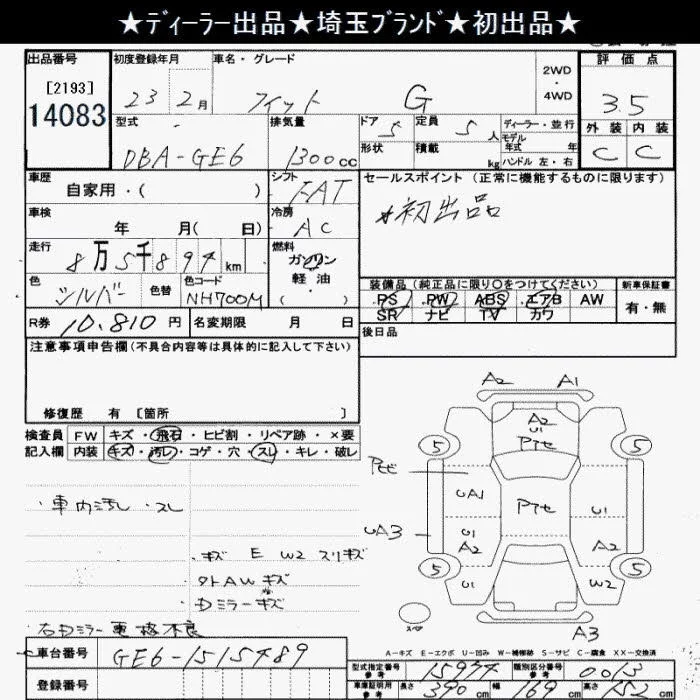 ★ディーラー出品★埼玉ブランド★初出品★
出品番号 初度登録年月 車名・グレード 2WD・4WD 評価点
[2193] 14083 23 2月 フィット G 3.5
型式 排気量 ドア 定員 ディーラー・並行 外装 内装
DBA-GE6 1300cc 5 5人 モデル年式 年 C C
形状 積載 kg ハンドル 左・右
車歴 シフト セールスポイント (正常に機能するものに限ります)
自家用・( ) FAT
★初出品
車検 冷房
年 月( 日) AC
走行 燃料
8万5千894km ガソリン
軽油
・( )
色 色替 色コード 装備品(純正品に限り○をつけてください) 新車保証書
シルバー NH700M PS PW ABS エアB AW 有・無
SR ナビ TV カワ
R券 10,810円 名変期限 月 日 後日品
注意事項申告欄(不具合内容等は具体的に記入して下さい)
修復歴 有 [箇所 ]
検査員 FW キズ・飛石・ヒビ割・リペア跡・×要
記入欄 内装 キズ・汚レ・コゲ・穴・スレ・キレ・破レ
・車内汚レ・スレ
・キズ E W2 スリキズ
・外AWキズ
・Dミラーキズ
A2 A1
A2
U1
5 Pアセ 5
Pヒビ
UA1 Pアセ U1
UA3 U1 A2
A2
5 5
U1 W2
スペア
A3
A-キズ E-エクボ U-凹み W-補修跡 S-サビ C-腐食 XX-交換済
車台番号 GE6-1515489
型式指定番号 参考 15944 類別区分番号 参考 0013
登録番号
車庫証明用 参考 長さ 390cm 幅 169cm 高さ 152cm